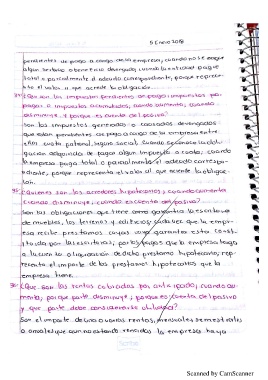 5 Enero 2018
pendientes de pago a cargo de la empresa, cuando no se pague
algún ámbito obtenemos derecho, cuando la entidad pague
total o parcialmente el adeudo correspondiente, porque representa
el valor que acrede la obligación.
¿Que son los impuestos pendientes de pago o impuestos por
pagar o impuestos acumulados, cuando aumenta, cuando
disminuye y porque es cuenta del pasivo?
Son los impuestos generados o causados devengados
que están pendientes de pago a cargo de la empresa
cuota patronal, seguro social. Cuando se conoce la obligación
de pago de algún impuesto o cuota; cuando
la empresa paga total o parcialmente el adeudo correspondiente,
porque representa el valor al que aciende la obligación.
¿Quienes son los acredores hipotecarios, cuando aumenta
cuando disminuye, cuando es cuenta del pasivo?
Son las obligaciones que tiene como garantía la escritura
de muebles, los terrenos y edificios, cada vez que la empresa
recibe prestamos cuya garantía esta constituida
por la escritura, por los pagos que la empresa haga
a cuenta o liquidación de dicho prestamo hipotecario, representa
el importe de los prestamos hipotecarios que la
empresa tiene.
¿Que son las rentas cobradas por anticipado, cuando aumenta,
porque parte disminuye, porque es cuenta del pasivo
y que parte debe considerarse utilidad?
Son el importe de una o varias rentas, mensuales semestrales
o anuales que aun no estando vencidas la empresa haya
Scribe
Scanned by CamScanner